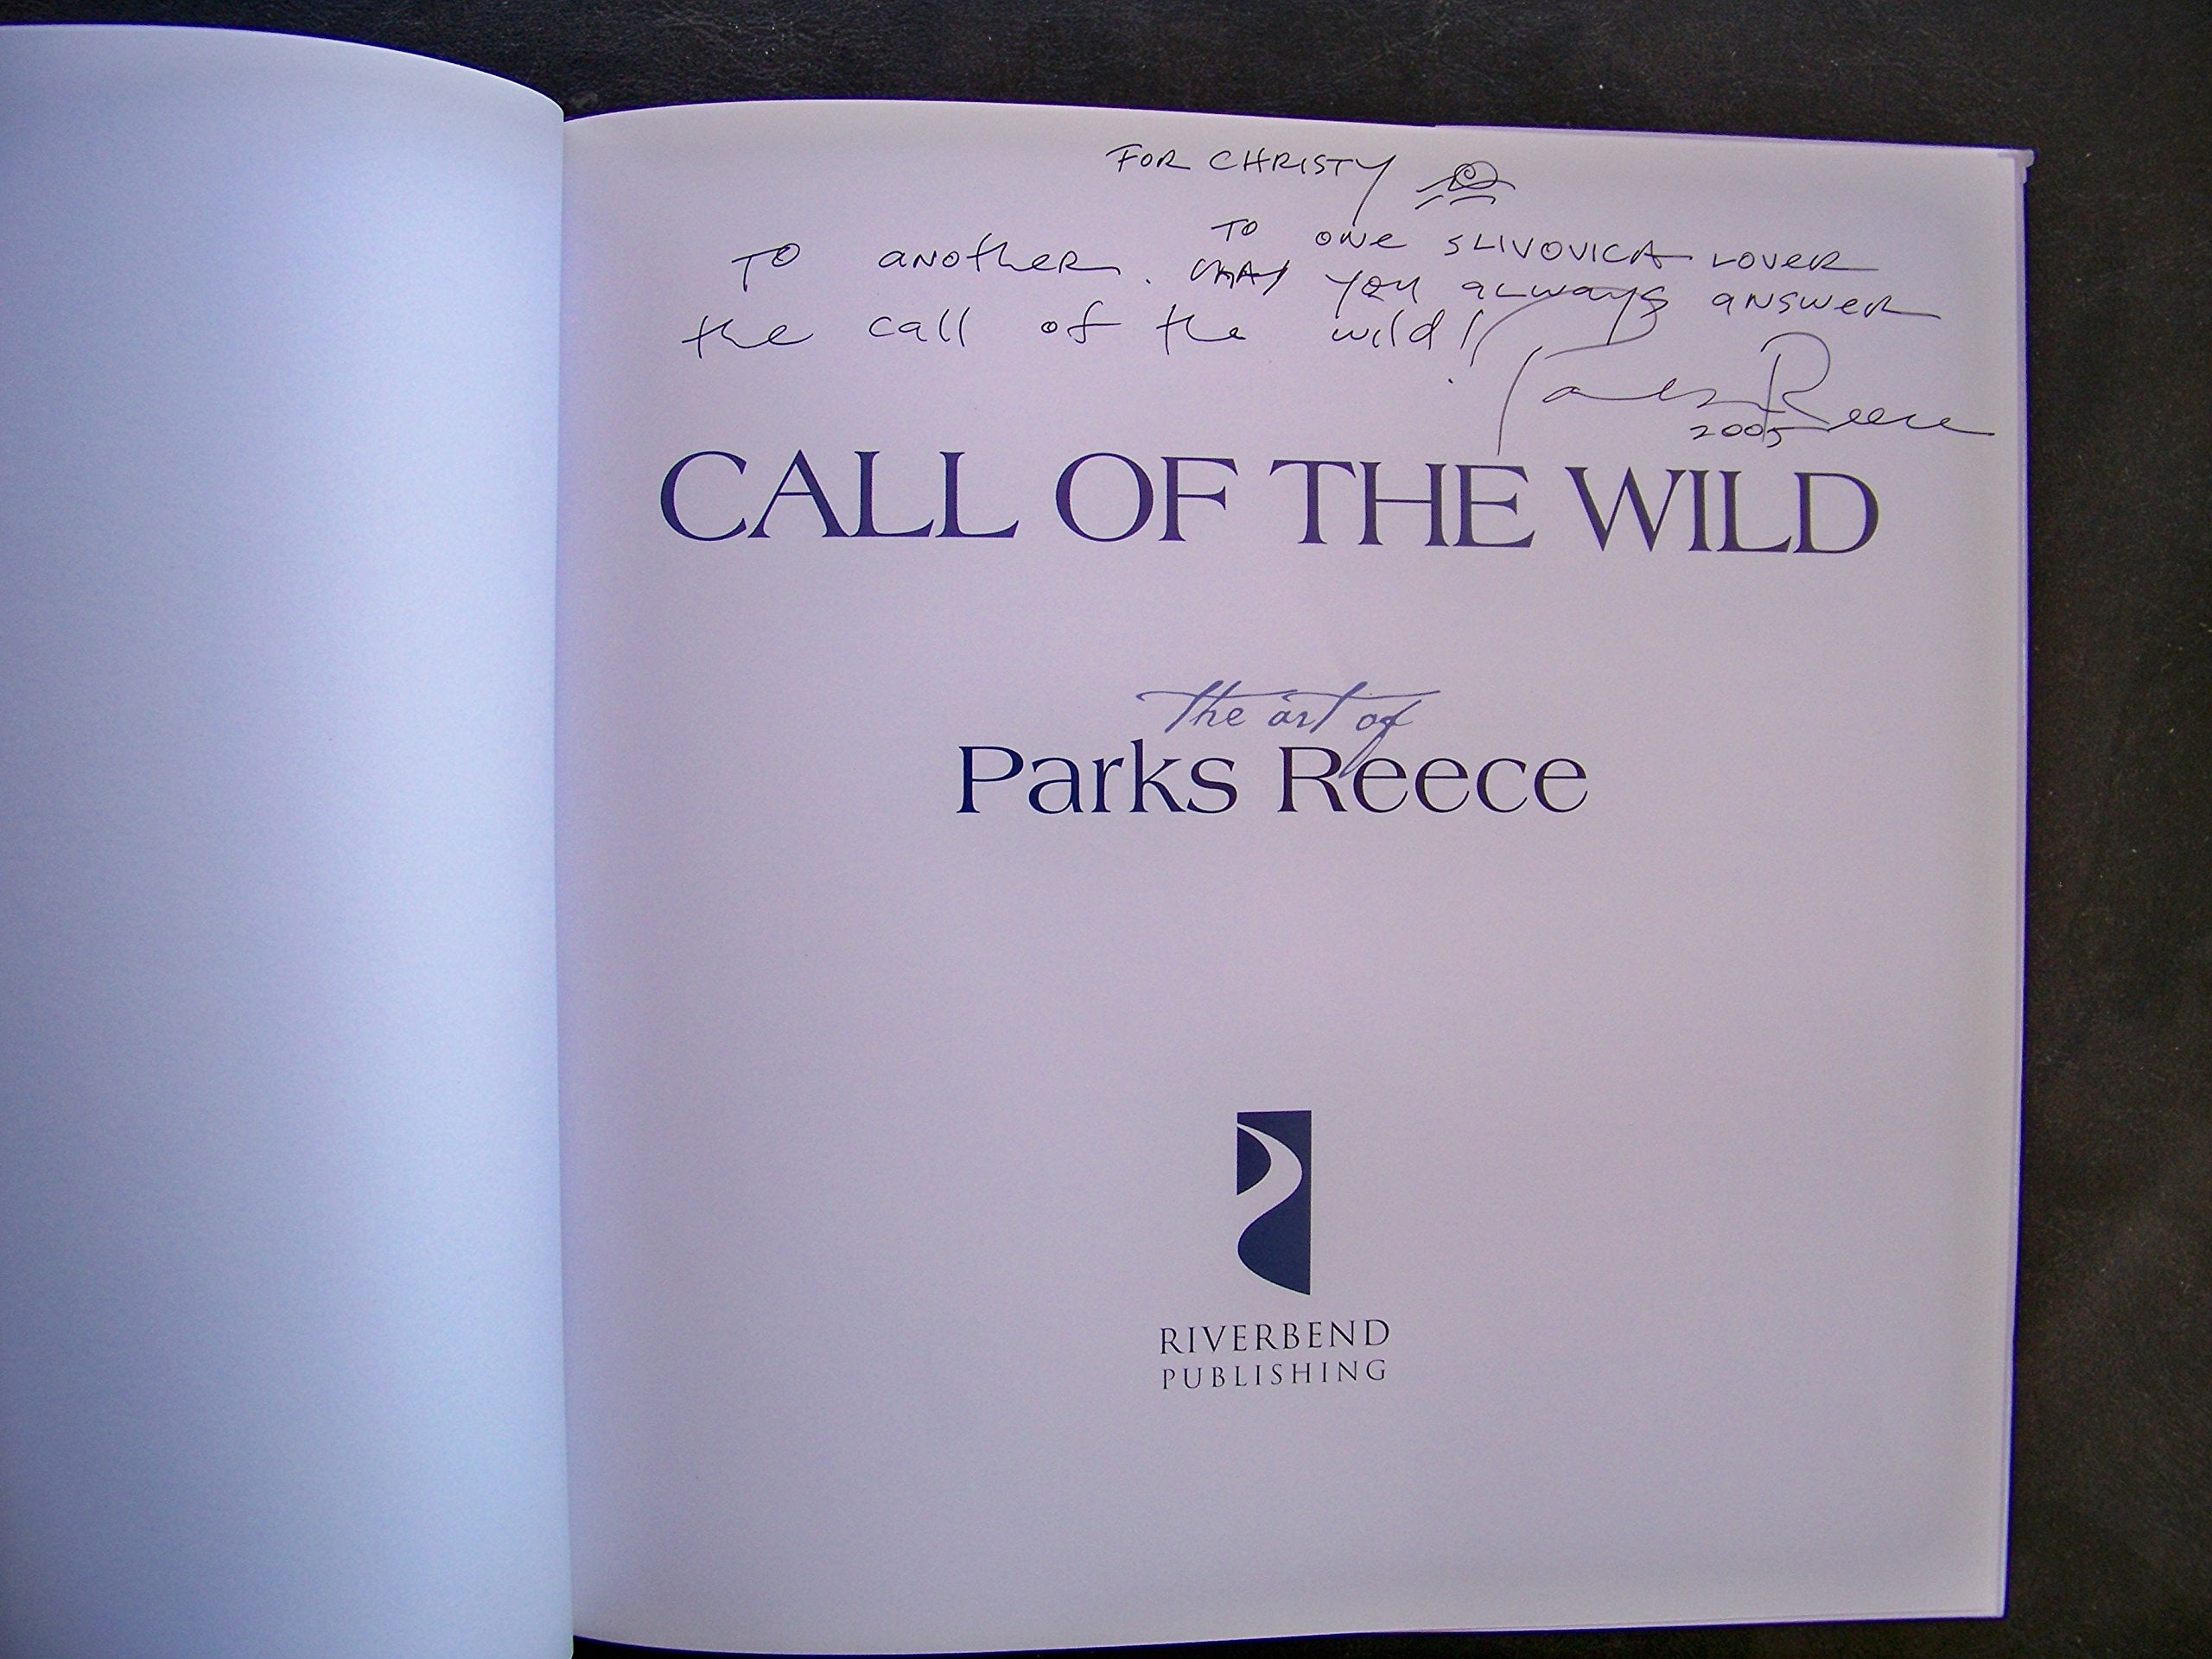 FOR CHRISTY
TO ONE SLIVOVICA LOVER
TO another. MAY you always answer
the call of the wild!
Parks Reece
2005
CALL OF THE WILD
The art of
Parks Reece
RIVERBEND
PUBLISHING